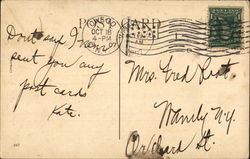 POST CARD
OCT 18
4-PM
Dont say I never
sent you any
post cards
Kate.
Mrs. Fred Post.
N.Y.
Orchard St.